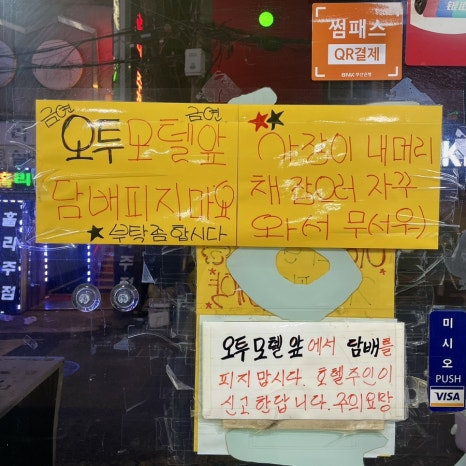 썸패스
QR결제
BNK 부산은행
금연
금연
오두모텔앞
담배피지마요
★부탁좀합시다
★★
사장이 내머리
채 잡으러 자꾸
와서 무서워)
오두모텔 앞에서 담배를
피지맙시다. 호텔주인이
신고한답니다. 주의요망
홀리
홀리주점
미시오
PUSH
VISA